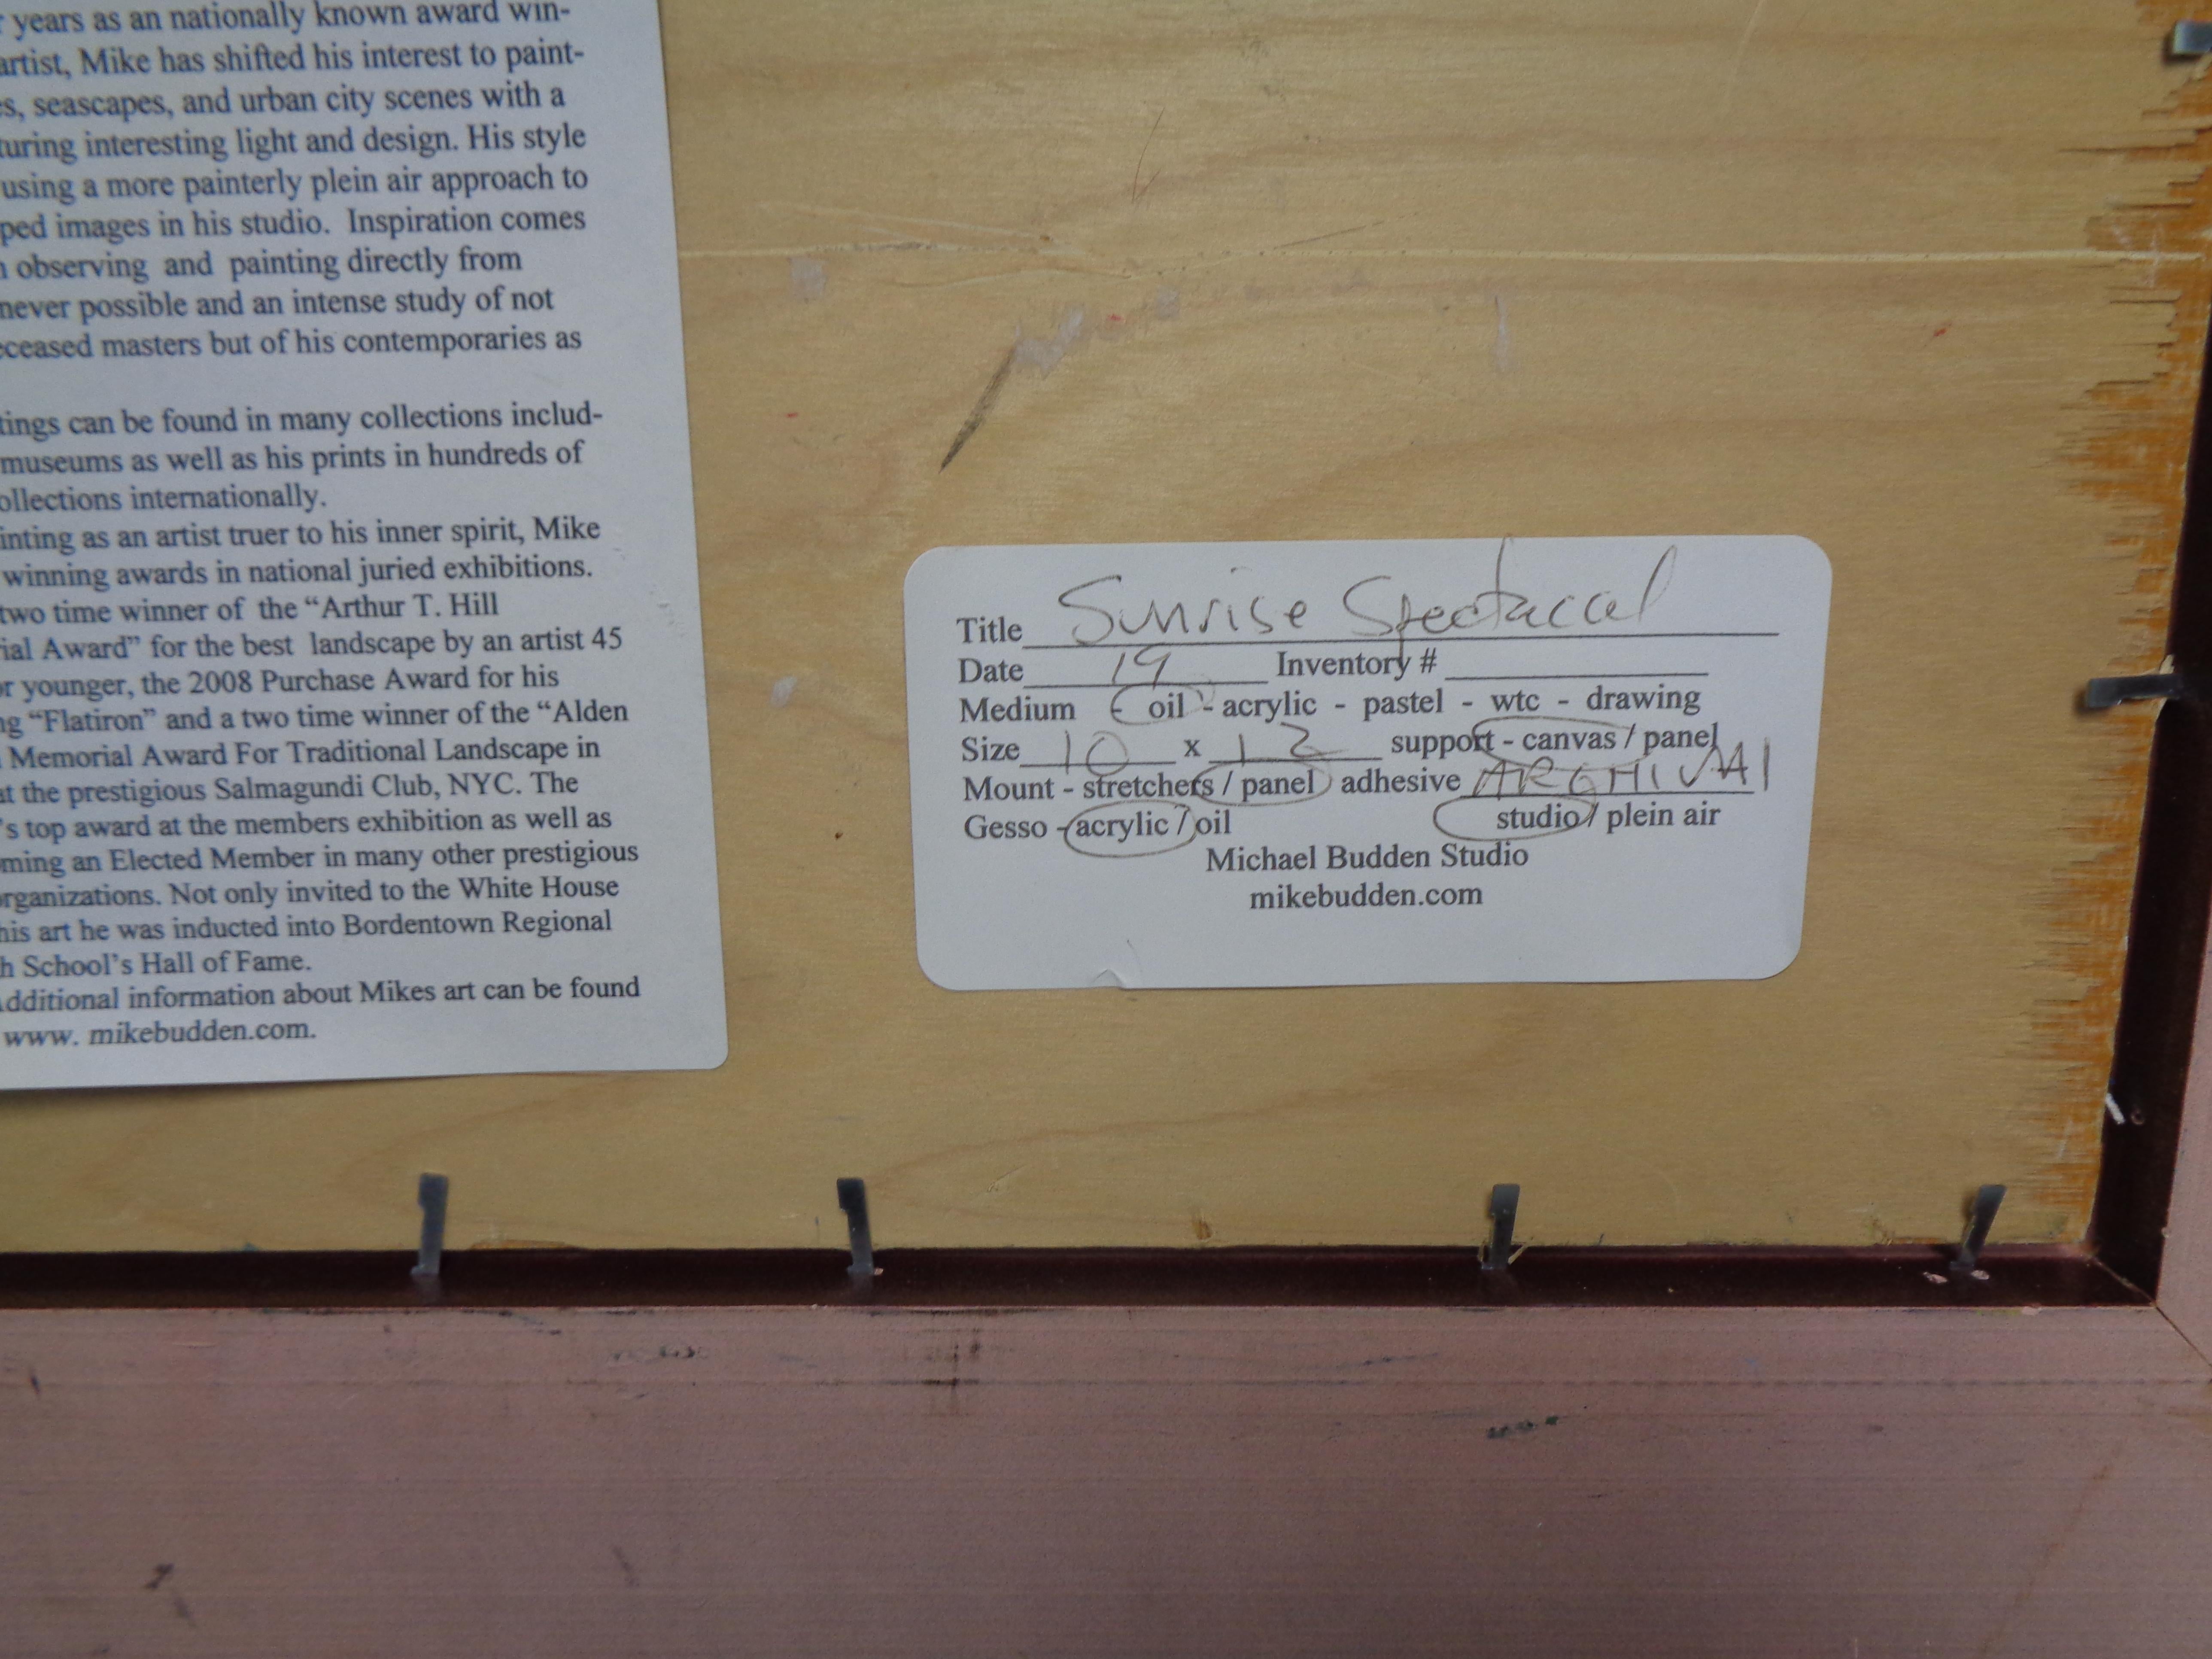 r years as an nationally known award win-
artist, Mike has shifted his interest to paint-
es, seascapes, and urban city scenes with a
turing interesting light and design. His style
using a more painterly plein air approach to
ped images in his studio. Inspiration comes
n observing and painting directly from
never possible and an intense study of not
eceased masters but of his contemporaries as
tings can be found in many collections includ-
museums as well as his prints in hundreds of
ollections internationally.
inting as an artist truer to his inner spirit, Mike
winning awards in national juried exhibitions.
two time winner of the “Arthur T. Hill
ial Award” for the best landscape by an artist 45
or younger, the 2008 Purchase Award for his
ng “Flatiron” and a two time winner of the “Alden
Memorial Award For Traditional Landscape in
at the prestigious Salmagundi Club, NYC. The
's top award at the members exhibition as well as
ming an Elected Member in many other prestigious
organizations. Not only invited to the White House
his art he was inducted into Bordentown Regional
h School's Hall of Fame.
Additional information about Mikes art can be found
www. mikebudden.com.
Title Sunrise Spectaccal
Date 19 Inventory #
Medium - oil - acrylic - pastel - wtc - drawing
Size 10 x 12 support - canvas / panel
Mount - stretchers / panel adhesive ARCHIVAl
Gesso - acrylic / oil studio / plein air
Michael Budden Studio
mikebudden.com